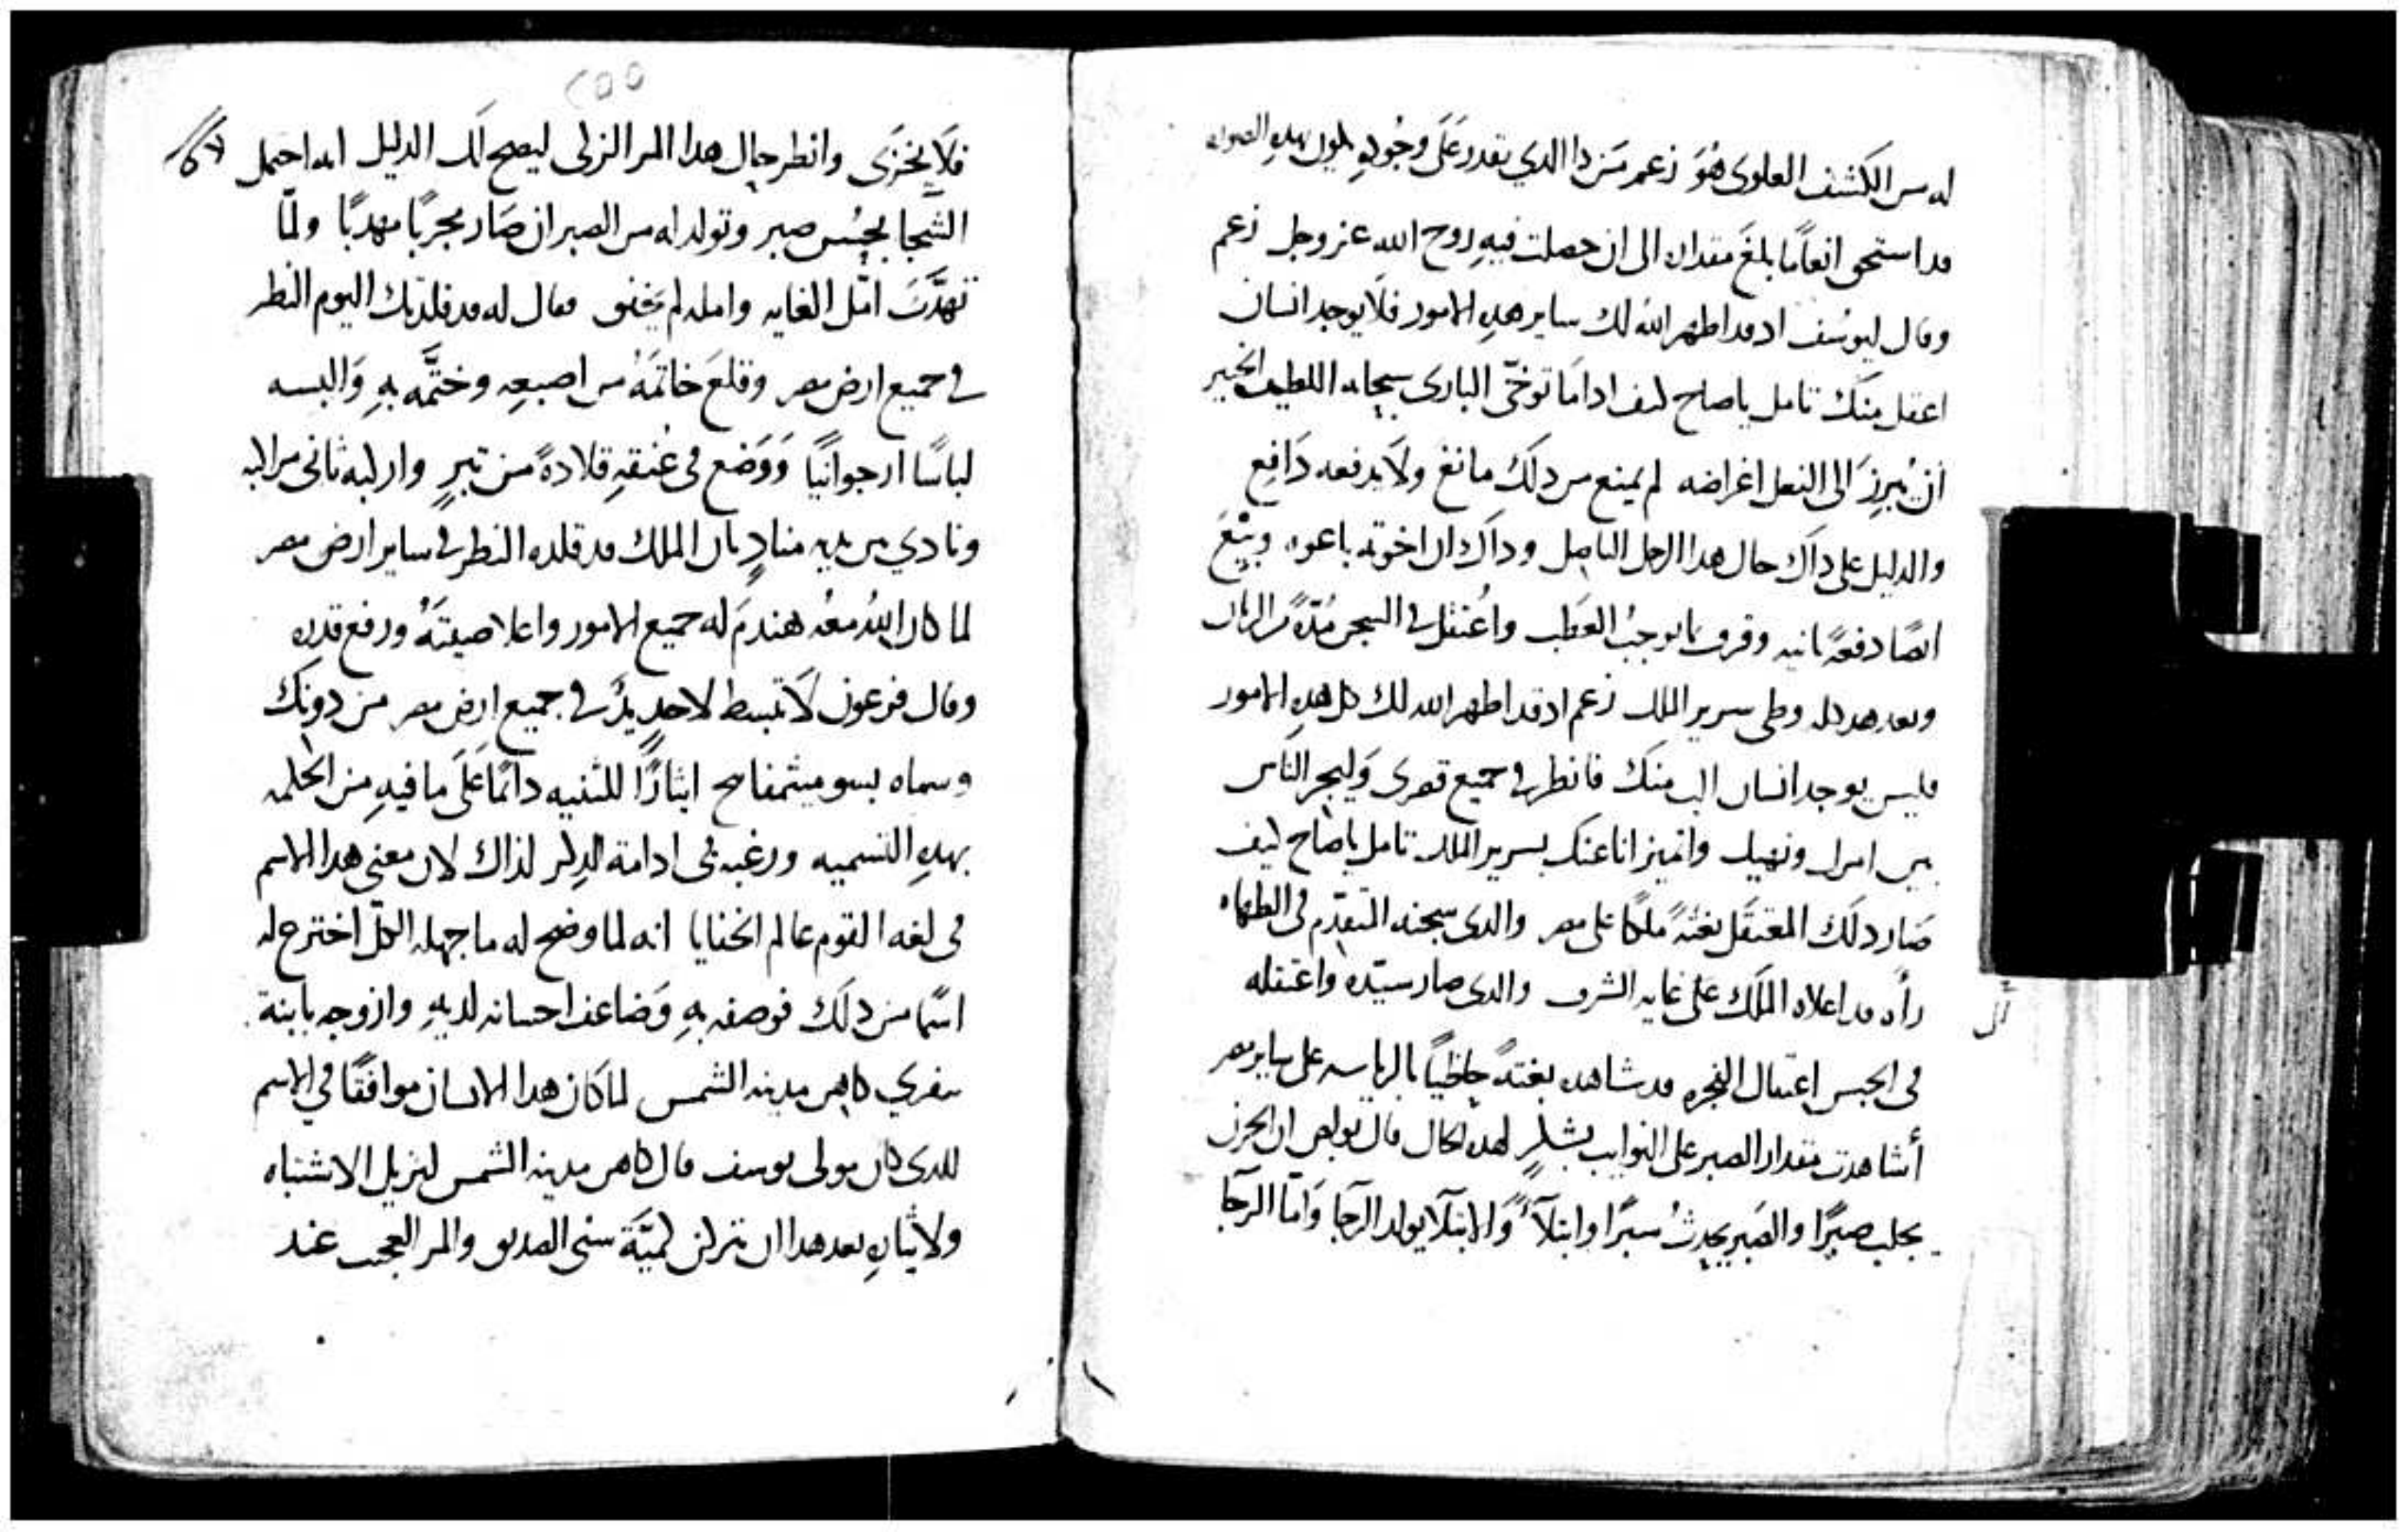 له من الكشف العلوى هُوَ زعم مَن دا الدي نقدر عَلَى وجُوده يكون بهدهِ الصوره
قد استحق انعَامًا بلغَ مقداره الى ان حصلت فيهِ روح الله عز وجل زعم
وقال ليوسُف اد قد اظهر الله لك ساير هدهِ الامور فلَا يوجد انسان
اعقل منك تامل ياصاح كيف ادا مَا توخّى البارى سبحانه اللطيف الخبير
أن يُبرِزَ الى الفعل اغراضه لم يمنع من دلكَ مانعٌ ولَا يدفعه دَافِع
والدليل على داك حال هدا الرجل الفاضل وداك ان اخوته باعوه وبِيْعَ
ايضًا دفعةً ثانيه وقرف بما يوجبُ العَطَب واعُتقل في السجن مُدّةً من الزمان
وبعد هدا كله وطى سرير الملك زعم اد قد اظهر الله لك كل هدهِ الامور
فليس يوجد انسان الب منك فانظر في جميع قصرى وَليجر الناس
بين امرك ونهيك واتميز انا عنك بسرير الملك تامل ياصَاح كيف
صَار دلك المعتقَل بغتةً ملكا على مصر والدى سجنه المتقدّم فى الطهاه
رأه قد اعلاه الملَك على غايه الشرف والدى صار سيّده واعتقله
أل
فى الحبس اعتقال الفجره قد شاهده بغتةً حاظيًا بالرياسه على ساير مصر
أشاهدت مقدار الصبر على النوايب بشكرٍ لهده الحال قال بولص ان الحزن
يجلب صبرًا والصَبر يحدثُ سبرًا وابتلآءً وَالابتلَا يولد الرجَا وَامّا الرجَا
٢٥٥
فلَا يُخزَى وانظر حال هدا الامر الزلى ليصح لَك الدليل انه احتمل
الشَجا بحُسن صبر وتولد له من الصبر ان صَار مجربًا مهدبًا ولمّا
تهدَّبَ امّل الغايه وامله لم يَخفق فقال له قد قلدتك اليوم النظر
في جميع ارض مصر وقلعَ خاتمَهُ من اصبعِه وختَّمه بهِ وَالبسه
لباسًا ارجوانيًا وَوَضع فى عُنقهِ قلادةً من تبرٍ واركبه ثانى مراكبه
ونادي بين يديه منادٍ بان الملك قد قلده النظر في ساير ارض مصر
لما كان اللهُ معُه هندمَ له جميع الامور واعلا صيتَهُ ورفع قدره
وقال فرعون لَا تبسط لاحدٍ يدٌ في جميع ارض مصر من دونك
وسماه بسوميثمفاميح ايثارًا للتنبيه دآئمًا عَلَى ما فيهِ من الحكمه
بهدهِ التسميه ورغبه فى ادامة الدِكر لذاك لان معنى هدا الاسم
فى لغه القوم عالم الخفايا انه لما وضح له ما جهله الكلّ اخترع له
اسمًا من دلكَ فوصفه بهِ وَضاعف احسانه لديهِ وازوجه بابنة
بنفرى كاهن مدينه الشمس لما كان هدا الانسان موافقًا في الاسم
للدى كان مولى يوسف قال كاهن مدينه الشمس ليزيل الاشتباه
ولايتانِ بعد هدا ان تترك لكميّة سنى الصديق والمر العجيب عند